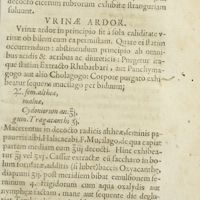 decocto cicerum rubrorum exhibitæ stranguriam
soluunt.
VRINÆ ARDOR.
Vrinæ ardor in principio sit à sola caliditate v-
rinæ ob bilem cum ea permistam. Quare ei statim
occurrendum: abstinendum principio ab omni-
bus acidis & acribus ac diureticis: Purgetur ita-
que statim Extracto Rhabarbari, aut Panchyma-
gogo aut alio Cholagogo: Corpore purgato exhi-
beatur sequens mucilago per biduum;
℞. sem. altheæ,
maluæ,
Cydoniorum an. ℥j,
gum. Tragacanthi
Macerentur in decocto radicis altheæ, seminis pa-
paueris albi, Halicacabi. F. Mucilago, de qua capiat
partem mediam cum decocti. Hinc exhibea-
tur Caffiæ extractæ cū saccharo in bo-
lum formatæ, additis succi Oxyacanthę,
diagridij
minum 4. frigidorum cum aqua oxalydis aut
nympheæ factam, mane, aut sequente die deglu-